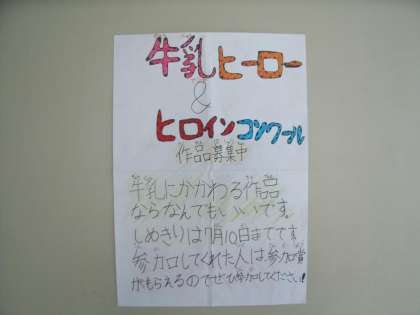 牛乳ヒーロー
&
ヒロインコンクール
作品募集中
牛乳にかかわる作品
ならなんでもいいです。
しめきりは7月10日までです
参加してくれた人は、参加賞
がもらえるのでぜひ参加してください!!